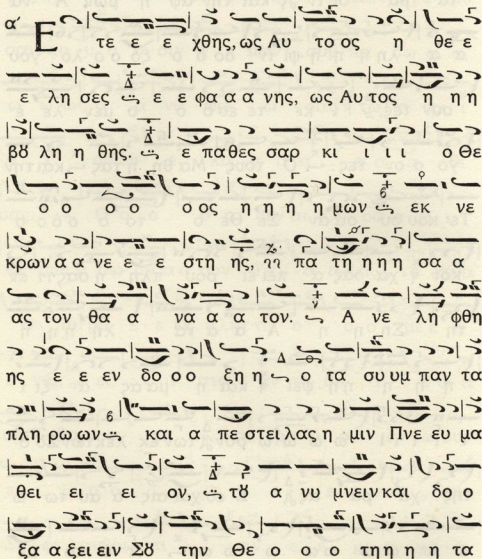 α΄ Ε τε ε ε χθης, ως Αυ το ος η θε ε
ε λη σες ε ε φα α α νης, ως Αυτος η η η
βȣ λη η θης, ε ε πα θες σαρ κι ι ι ο Θε
ο ο ο ο ο ος η η η η μων εκ νε
κρων α α νε ε ε στη ης, πα τη η η η σα α
ας τον θα α να α α τον. Α νε λη φθη
ης ε ε εν δο ο ο ξη η ο τα συ υμ παν τα
πλη ρω ων και α πε στει λας η μιν Πνε ευ μα
θει ει ει ει ον, τȣ α νυ μνειν και δο ο
ξα α ξει ειν Σȣ την Θε ο ο ο τη η η η τα